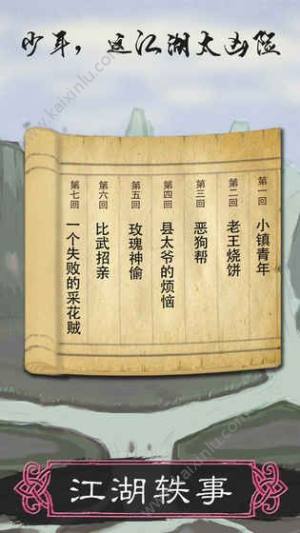 少年，这江湖太凶险
第一回 小镇青年
第二回 老王烧饼
第三回 恶狗帮
第四回 县太爷的烦恼
第五回 玫瑰神偷
第六回 比武招亲
第七回 一个失败的采花贼
江湖轶事
www.kaixinlu.com